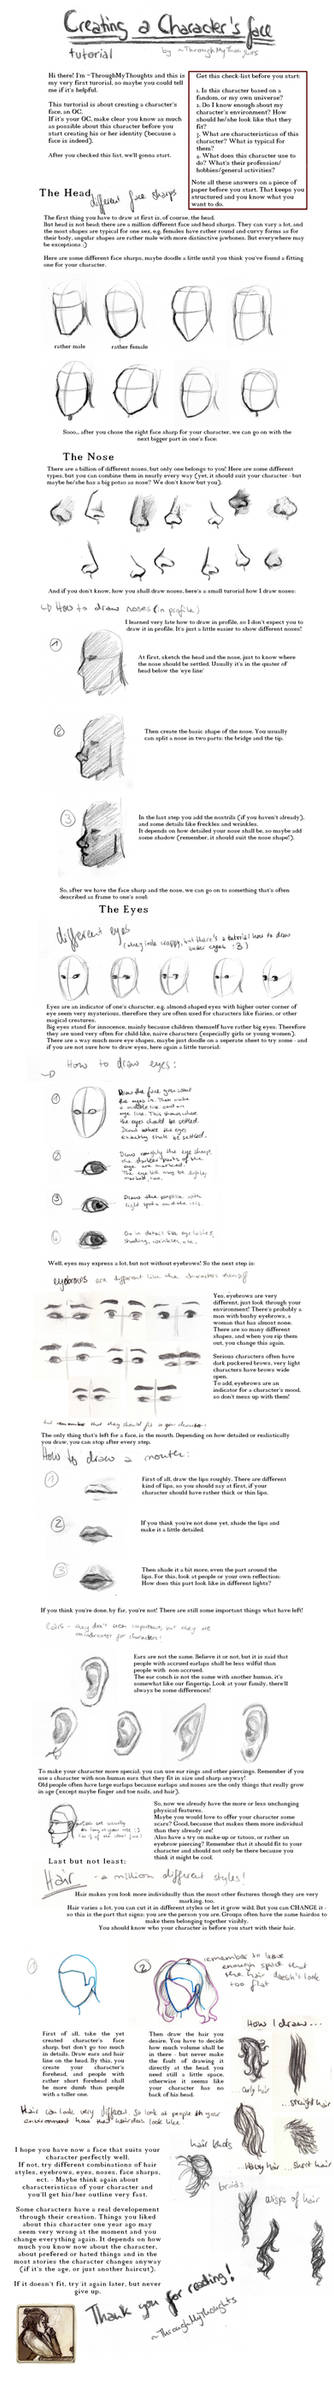 Creating a Character's face
tutorial
by ~ThroughMyThoughts
Hi there! I'm ~ThroughMyThoughts and this is
my very first turorial, so maybe you could tell
me if it's helpful.
This turtorial is about creating a character's
face, an OC.
If it's your OC, make clear you know as much
as possible about this character before you
start creating his or her identity (because a
face is indeed).
After you checked this list, we'll gonna start.
Get this check-list before you start:
1. Is this character based on a
fandom, or my own universe?
2. Do I know enough about my
character's environment? How
should he/she look like that they
fit?
3. What are characteristicas of this
character? What is typical for
them?
4. What does this character use to
do? What's their profession/
hobbies/general activities?
Note all these answers on a piece of
paper before you start. That keeps you
structured and you know what you
want to do.
The Head
different face sharps
The first thing you have to draw at first is, of course, the head.
But head is not head; there are a million different face and head sharps. They can vary a lot, and
the most shapes are typical for one sex, e.g. females have rather round and curvy forms as for
their body, angular shapes are rather male with more distinctive jawbones. But everywhere may
be exceptions. ;)
Here are some different face sharps, maybe doodle a little until you think you've found a fitting
one for your character.
rather male
rather female
Sooo,.. after you chose the right face sharp for your character, we can go on with the
next bigger part in one's face:
The Nose
There are a billion of different noses, but only one belongs to you! Here are some different
types, but you can combine them in nearly every way (yet, it should suit your character - but
maybe he/she has a big potao as nose? We don't know but you).
And if you don't know, how you shall draw noses, here's a small tutorial how I draw noses:
How to draw noses (in profile)
I learned very late how to draw in profile, so I don't expect you to
draw it in profile. It's just a little easier to show different noses!
1
At first, sketch the head and the nose, just to know where
the nose should be settled. Usually it's in the quater of
head below the 'eye line'
2
Then create the basic shape of the nose. You usually
can split a nose in two parts: the bridge and the tip.
3
In the last step you add the nostrils (if you haven't already),
and some details like freckles and wrinkles.
It depends on how detailed your nose shall be, so maybe add
some shadow (remember, it should suit the nose shape!).
So, after we have the face sharp and the nose, we can go on to something that's often
described as frame to one's soul:
The Eyes
different eyes
(they look crappy, but there's a tutorial how to draw
better eyes! :3)
Eyes are an indicator of one's character, e.g. almond-shaped eyes with higher outer corner of
eye seem very mysterious, therefore they are often used for characters like fairies, or other
magical creatures.
Big eyes stand for innocence, mainly because children themself have rather big eyes. Therefore
they are used very often for child-like, naive characters (especially girls or young women).
There are a way much more eye shapes, maybe just doodle on a seperate sheet to try some - and
if you are not sure how to draw eyes, here again a little turorial:
How to draw eyes:
1
Draw the face you want
the eyes in. Then make
a middle line and an
eye line. This shows where
the eyes should be settled.
Draw where the eyes
exactly shall be settled.
2
Draw roughly the eye shape,
the darkest parts of the
eye are marked.
The eye lid may be lightly
marked, too.
3
Draw the pupil with
light spot and the iris.
4
Go in detail like eye lashes,
shading, wrinkles, etc.
Well, eyes may express a lot, but not without eyebrows! So the next step is:
eyebrows are different like the characters themself
Yes, eyebrows are very
different, just look through your
environment! There's probably a
man with bushy eyebrows, a
woman that has almost none.
There are so many different
shapes, and when you rip them
out, you change this again.
Serious characters often have
dark puckered brows, very light
characters have brows wide
open.
To add, eyebrows are an
indicator for a character's mood,
so don't mess up with them!
but remember that they should fit to your character!
The only thing that's left for a face, is the mouth. Depending on how detailed or realistically
you draw, you can stop after every step.
How to draw a mouth:
1
First of all, draw the lips roughly. There are different
kind of lips, so you should say at first, if your
character should have rather thick or thin lips.
2
If you think you're not done yet, shade the lips and
make it a little detailed.
3
Then shade it a bit more, even the part around the
lips. For this, look at people or your own reflection:
How does this part look like in different lights?
If you think you're done, by far, you're not! There are still some important things what have left!
Ears - they don't seem important, but they are
an indicator for characters!
Ears are not the same. Believe it or not, but it is said that
people with accrued earlaps shall be less wilful than
people with non-accrued.
The ear conch is not the same with another human, it's
somewhat like our fingertip. Look at your family, there'll
always be some differences!
To make your character more special, you can use ear rings and other piercings. Remember if you
use a character with non-human ears that they fit in size and sharp anyway!
Old people often have large earlaps because earlaps and noses are the only things that really grow
in age (except maybe finger and toe nails, and hair).
So, now we already have the more or less unchanging
physical features.
Maybe you would love to offer your character some
scars? Good, because that makes them more individual
than they already are!
Also have a try on make-up or tatoos, or rather an
eyebrow piercing? Remember it should fit to your
character and should not only be there because you
think it might be cool.
Last but not least:
Hair - a million different styles!
Hair makes you look more individually than the most other features though they are very
marking, too.
Hair varies a lot, you can cut it in different styles or let it grow wild. But you can CHANGE it -
so this is the part that signs: you are the person you are. Groups often have the same hairdos to
make them belonging together visibly.
You should know who your character is before you start with their hair.
1
2
remember to leave
enough space that
the hair doesn't look
too flat
First of all, take the yet
created character's face
sharp, but don't go too much
in details. Draw ears and hair
line on the head. By this, you
create your character's
forehead, and people with
rather short forehead shall
be more dumb than people
with a taller one.
Then draw the hair you
desire. You have to decide
how much volume shall be
in there - but never make
the fault of drawing it
directly at the head, you
need still a little space,
otherwise it seems like
your character has no
back of his head.
How I draw...
...curly hair
...straight hair
...wavy hair
...short hair
Hair can look very different, so look at people in your
environment how their hairdos look like!
hair knots
braids
wisps of hair
I hope you have now a face that suits your
character perfectly well.
If not, try different combinations of hair
styles, eyebrows, eyes, noses, face sharps,
ect. - Maybe think again about
characteristicas of your character and
you'll get his/her outline very fast.
Some characters have a real developement
through their creation. Things you liked
about this character one year ago may
seem very wrong at the moment and you
change everything again. It depends on how
much you know now about the character,
about prefered or hated things and in the
most stories the character changes anyway
(if it's the age, or just another haircut).
If it doesn't fit, try it again later, but never
give up.
Thank you for reading!
~ThroughMyThoughts